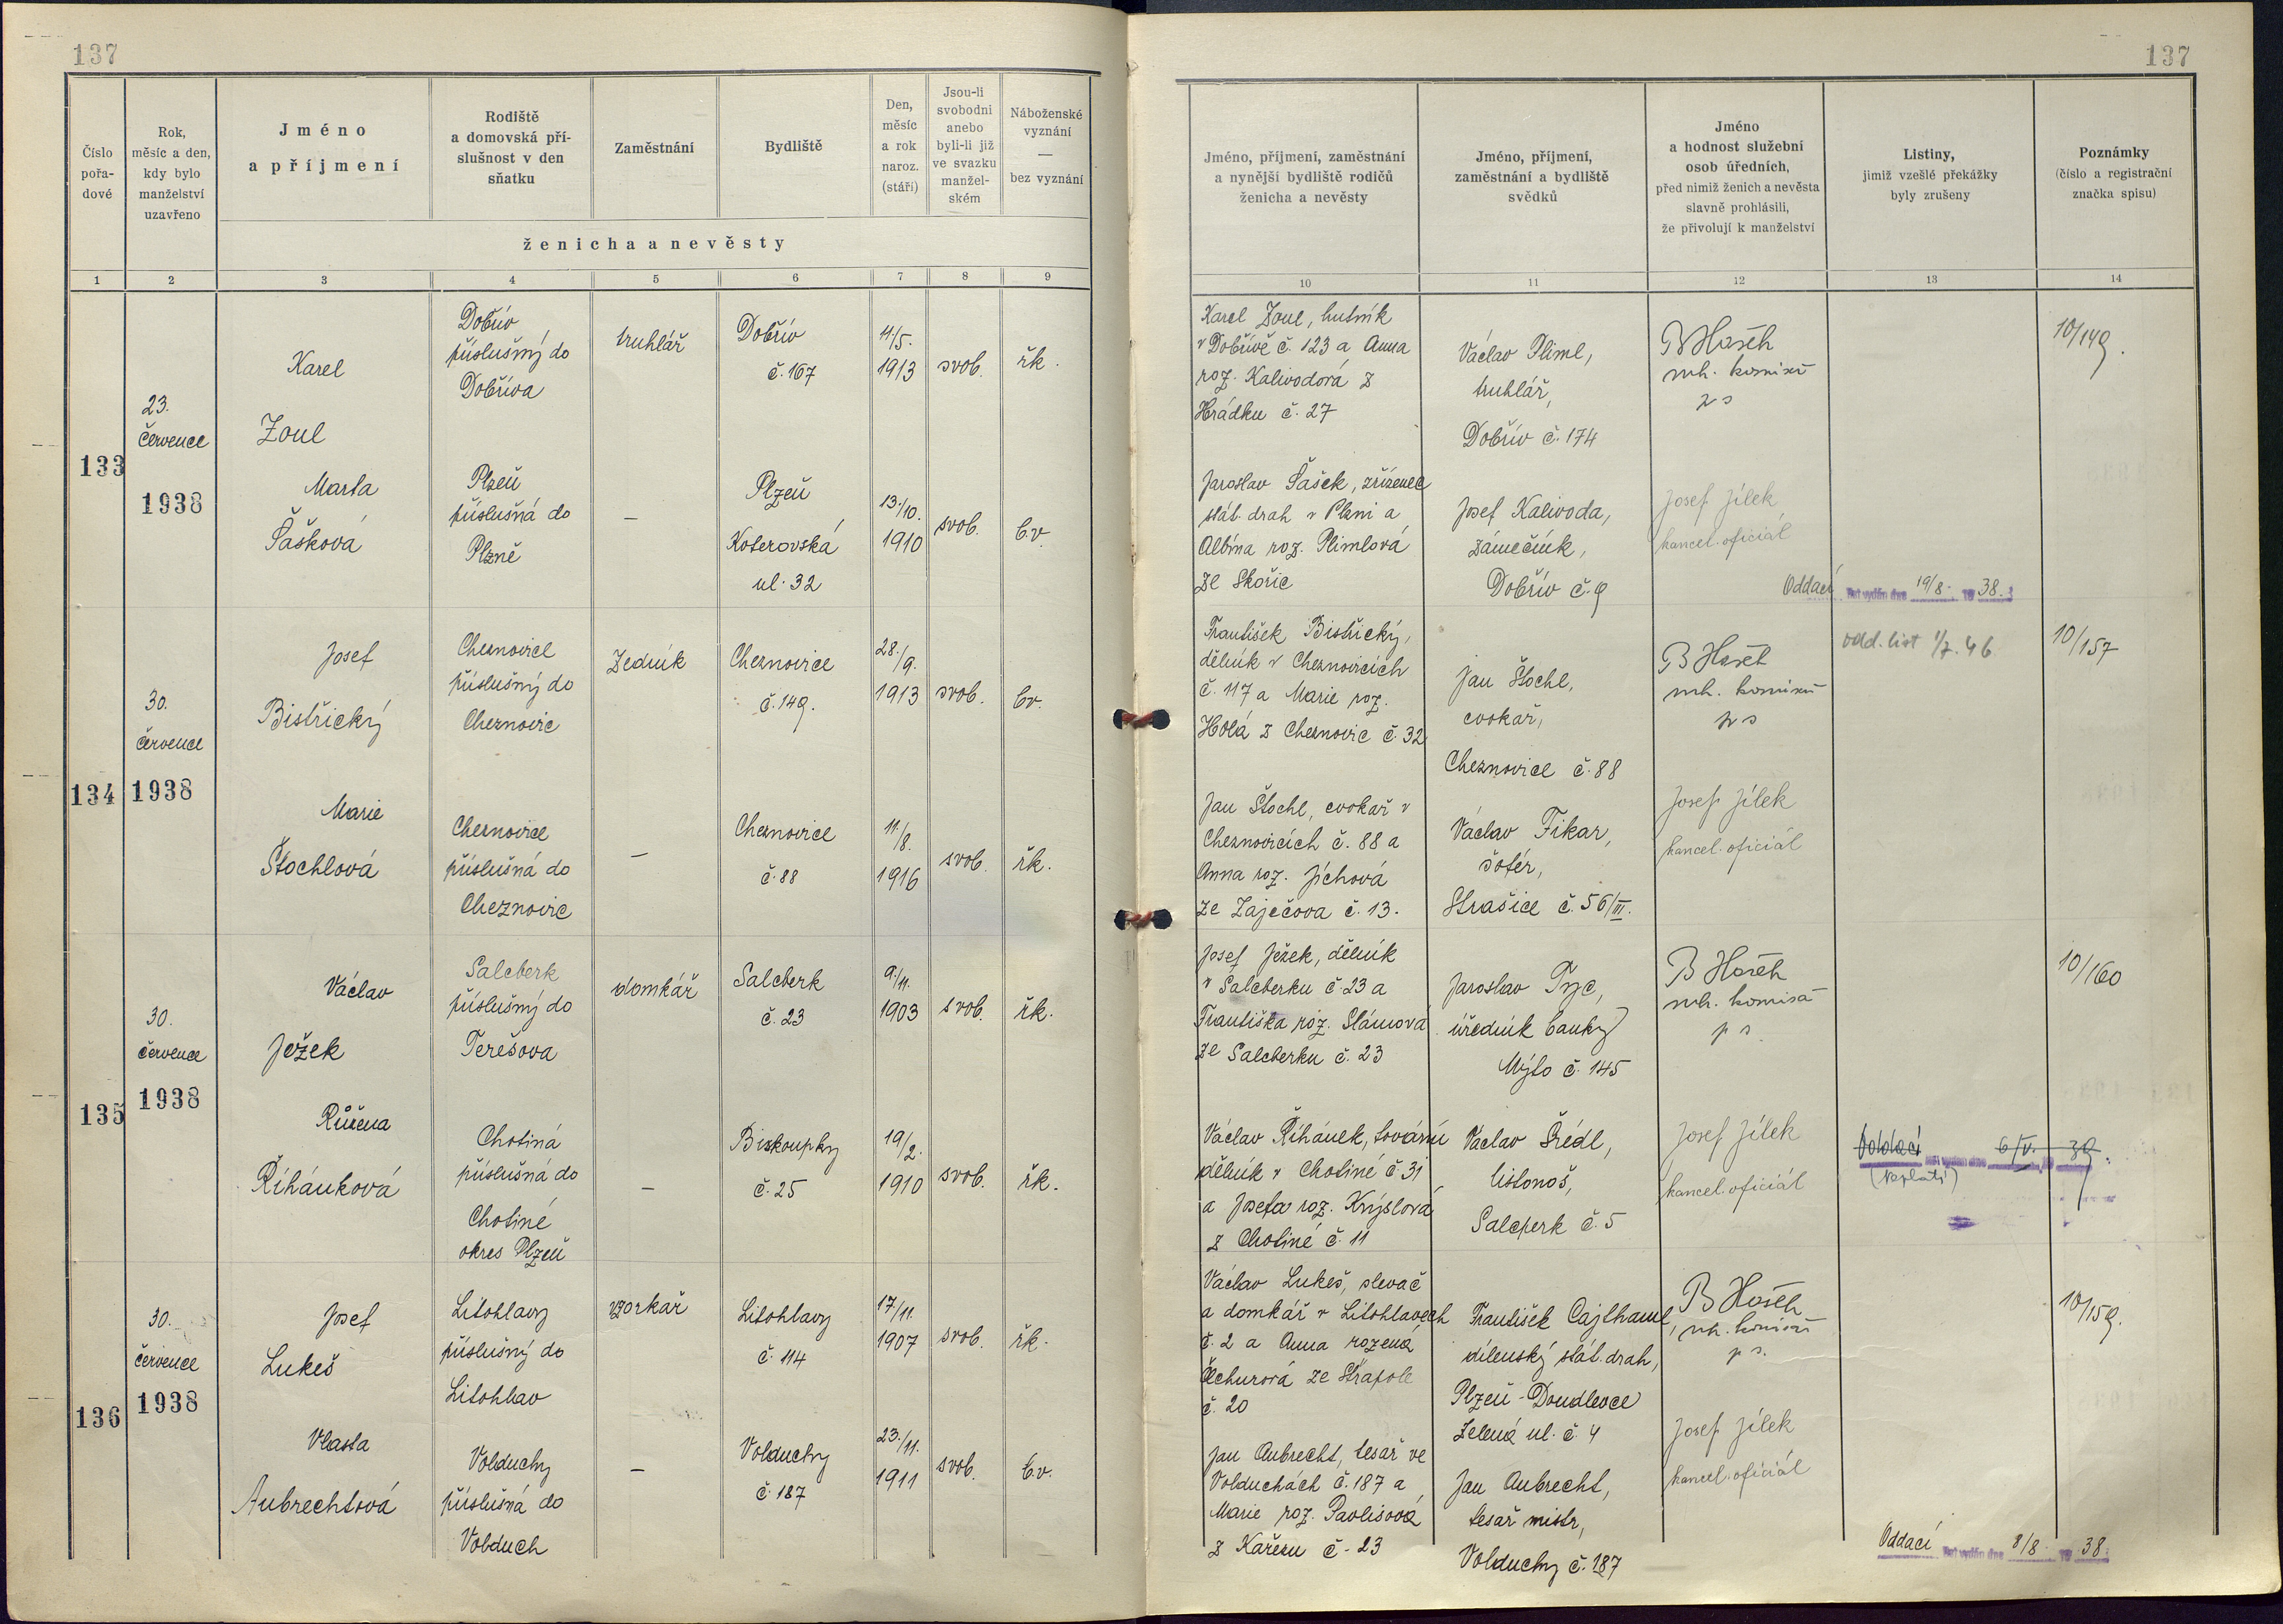 137
137
Číslo
pořa-
dové
Rok,
měsíc a den,
kdy bylo
manželství
uzavřeno
Jméno
a příjmení
Rodiště
a domovská pří-
slušnost v den
sňatku
Zaměstnání
Bydliště
Den,
měsíc
a rok
naroz.
(stáří)
Jsou-li
svobodni
anebo
byli-li již
ve svazku
manžel-
ském
Náboženské
vyznání
—
bez vyznání
ženicha a nevěsty
Jméno, příjmení, zaměstnání
a nynější bydliště rodičů
ženicha a nevěsty
Jméno, příjmení,
zaměstnání a bydliště
svědků
Jméno
a hodnost služební
osob úředních,
před nimiž ženich a nevěsta
slavně prohlásili,
že přivolují k manželství
Listiny,
jimiž vzešlé překážky
byly zrušeny
Poznámky
(číslo a registrační
značka spisu)
1 2 3 4 5 6 7 8 9 10 11 12 13 14
133
23.
července
1938
Karel
Zoul
Dobřív
příslušný do
Dobříva
truhlář
Dobřív
č. 167
11./5.
1913
svob.
řk.
Karel Zoul, hutník
v Dobřívě č. 123 a Anna
roz. Kalivodová z
Hrádku č. 27
Václav Pliml,
truhlář,
Dobřív č. 174
10/149.
Marta
Šašková
Plzeň
příslušná do
Plzně
—
Plzeň
Koterovská
ul. 32
13./10.
1910
svob.
b.v.
Jaroslav Šašek, zřízenec
stát. drah v Plzni a
Albína roz. Plimlová
ze Skořic
Josef Kalivoda,
zámečník,
Dobřív č. 9
Josef Jílek
kancel. oficiál
Oddací list vydán dne 19/8. 1938.
134
30.
července
1938
Josef
Bistřický
Cheznovice
příslušný do
Cheznovic
Zedník
Cheznovice
č. 149.
28./9.
1913
svob.
bv.
František Bistřický,
dělník v Cheznovicích
č. 117 a Marie roz.
Holá z Cheznovic č. 32
Jan Štochl,
cvokař,
Cheznovice č. 88
odd. list 1/7. 46.
10/157
Marie
Štochlová
Cheznovice
příslušná do
Cheznovic
—
Cheznovice
č. 88
11./8.
1916
svob.
řk.
Jan Štochl, cvokař v
Cheznovicích č. 88 a
Anna roz. Jíchová
ze Zaječova č. 13.
Václav Fikar,
šofér,
Strašice č. 56/III.
Josef Jílek
kancel. oficiál
135
30.
července
1938
Václav
Ježek
Salcberk
příslušný do
Terešova
domkář
Salcberk
č. 23
9./11.
1903
svob.
řk.
Josef Ježek, dělník
v Salcberku č. 23 a
Františka roz. Slámová
ze Salcberku č. 23
Jaroslav Tyc,
úředník banky
Mýto č. 145
10/160
Růžena
Říhánková
Chotiná
příslušná do
Chotiné
okres Plzeň
—
Biskoupky
č. 25
19/2.
1910
svob.
řk.
Václav Říhánek, tovární
dělník v Chotiné č. 31
a Josefa roz. Krýslová
z Chotiné č. 11
Václav Šrédl,
listonoš,
Salcberk č. 5
Josef Jílek
kancel. oficiál
Oddací list vydán dne 6/V. 1939.
(neplatí)
136
30.
července
1938
Josef
Lukeš
Litohlavy
příslušný do
Litohlav
vzorkař
Litohlavy
č. 114
17/11.
1907
svob.
řk.
Václav Lukeš, slevač
a domkář v Litohlavech
č. 2 a Anna rozená
Čechurová ze Strapole
č. 20
František Cajthaml,
dílenský stát. drah,
Plzeň-Doudlevce
Zelená ul. č. 4
10/159.
Vlasta
Aubrechtová
Volduchy
příslušná do
Volduch
—
Volduchy
č. 187
23./11.
1911
svob.
b.v.
Jan Aubrecht, tesař ve
Volduchách č. 187 a
Marie roz. Pavlisová
z Kařezu č. 23
Jan Aubrecht,
tesař mistr,
Volduchy č. 187
Josef Jílek
kancel. oficiál
Oddací list vydán dne 8/8. 1938.